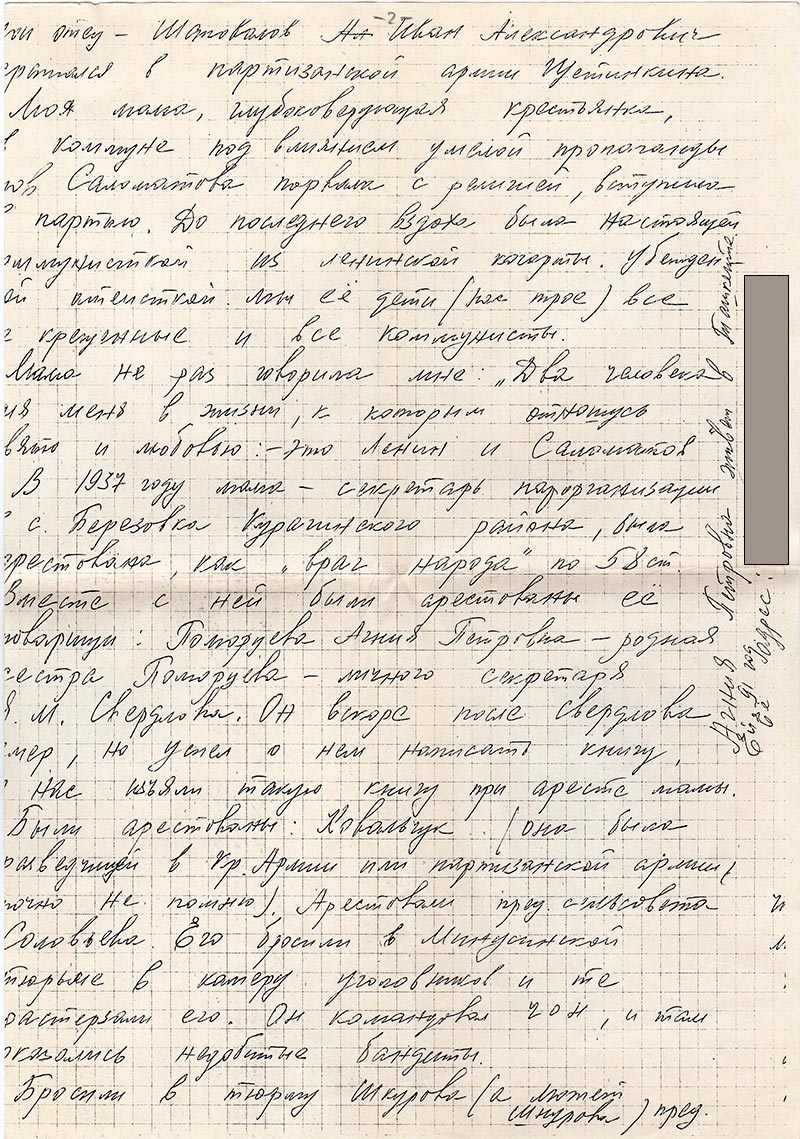 -2-
отец – Шаповалов Иван Александрович
сражался в партизанской армии Щетинкина.
Моя мама, глубоковерующая крестьянка,
в коммуне под влиянием умелой пропаганды
Саломатова порвала с религией, вступила
партию. До последнего вздоха была настоящей
оммунисткой из ленинской когорты. Убежден-
ой атеисткой. Мы её дети (нас трое) все
крещёные и все коммунисты.
Мама не раз говорила мне: „Два человека
меня в жизни, к которым отношусь
вято и любовью: – это Ленин и Саломатов
В 1937 году мама – секретарь парорганизации
с. Березовка Курагинского района, была
рестована, как „враг народа" по 58 ст.
Вместе с ней были арестованы её
товарищи: Поморуева Агния Петровна – родная
сестра Поморуева – личного секретаря
Я. М. Свердлова. Он вскоре после Свердлова
умер, но успел о нем написать книгу,
нас изъяли такую книгу при аресте мамы.
Были арестованы: Ковальчук (она была
разведчицей в Кр. Армии или партизанской армии,
точно не помню). Арестовали пред. сельсовета
Соловьева. Его бросили в Минусинской
тюрьме в камеру уголовников и те
растерзали его. Он командовал ЧОН, и там
оказались недобитые бандиты.
Бросили в тюрьму Шкурова (а может
Шнурова) пред.
Агния Петровна живет в Ташкенте
Ей 91 год
Её адрес: